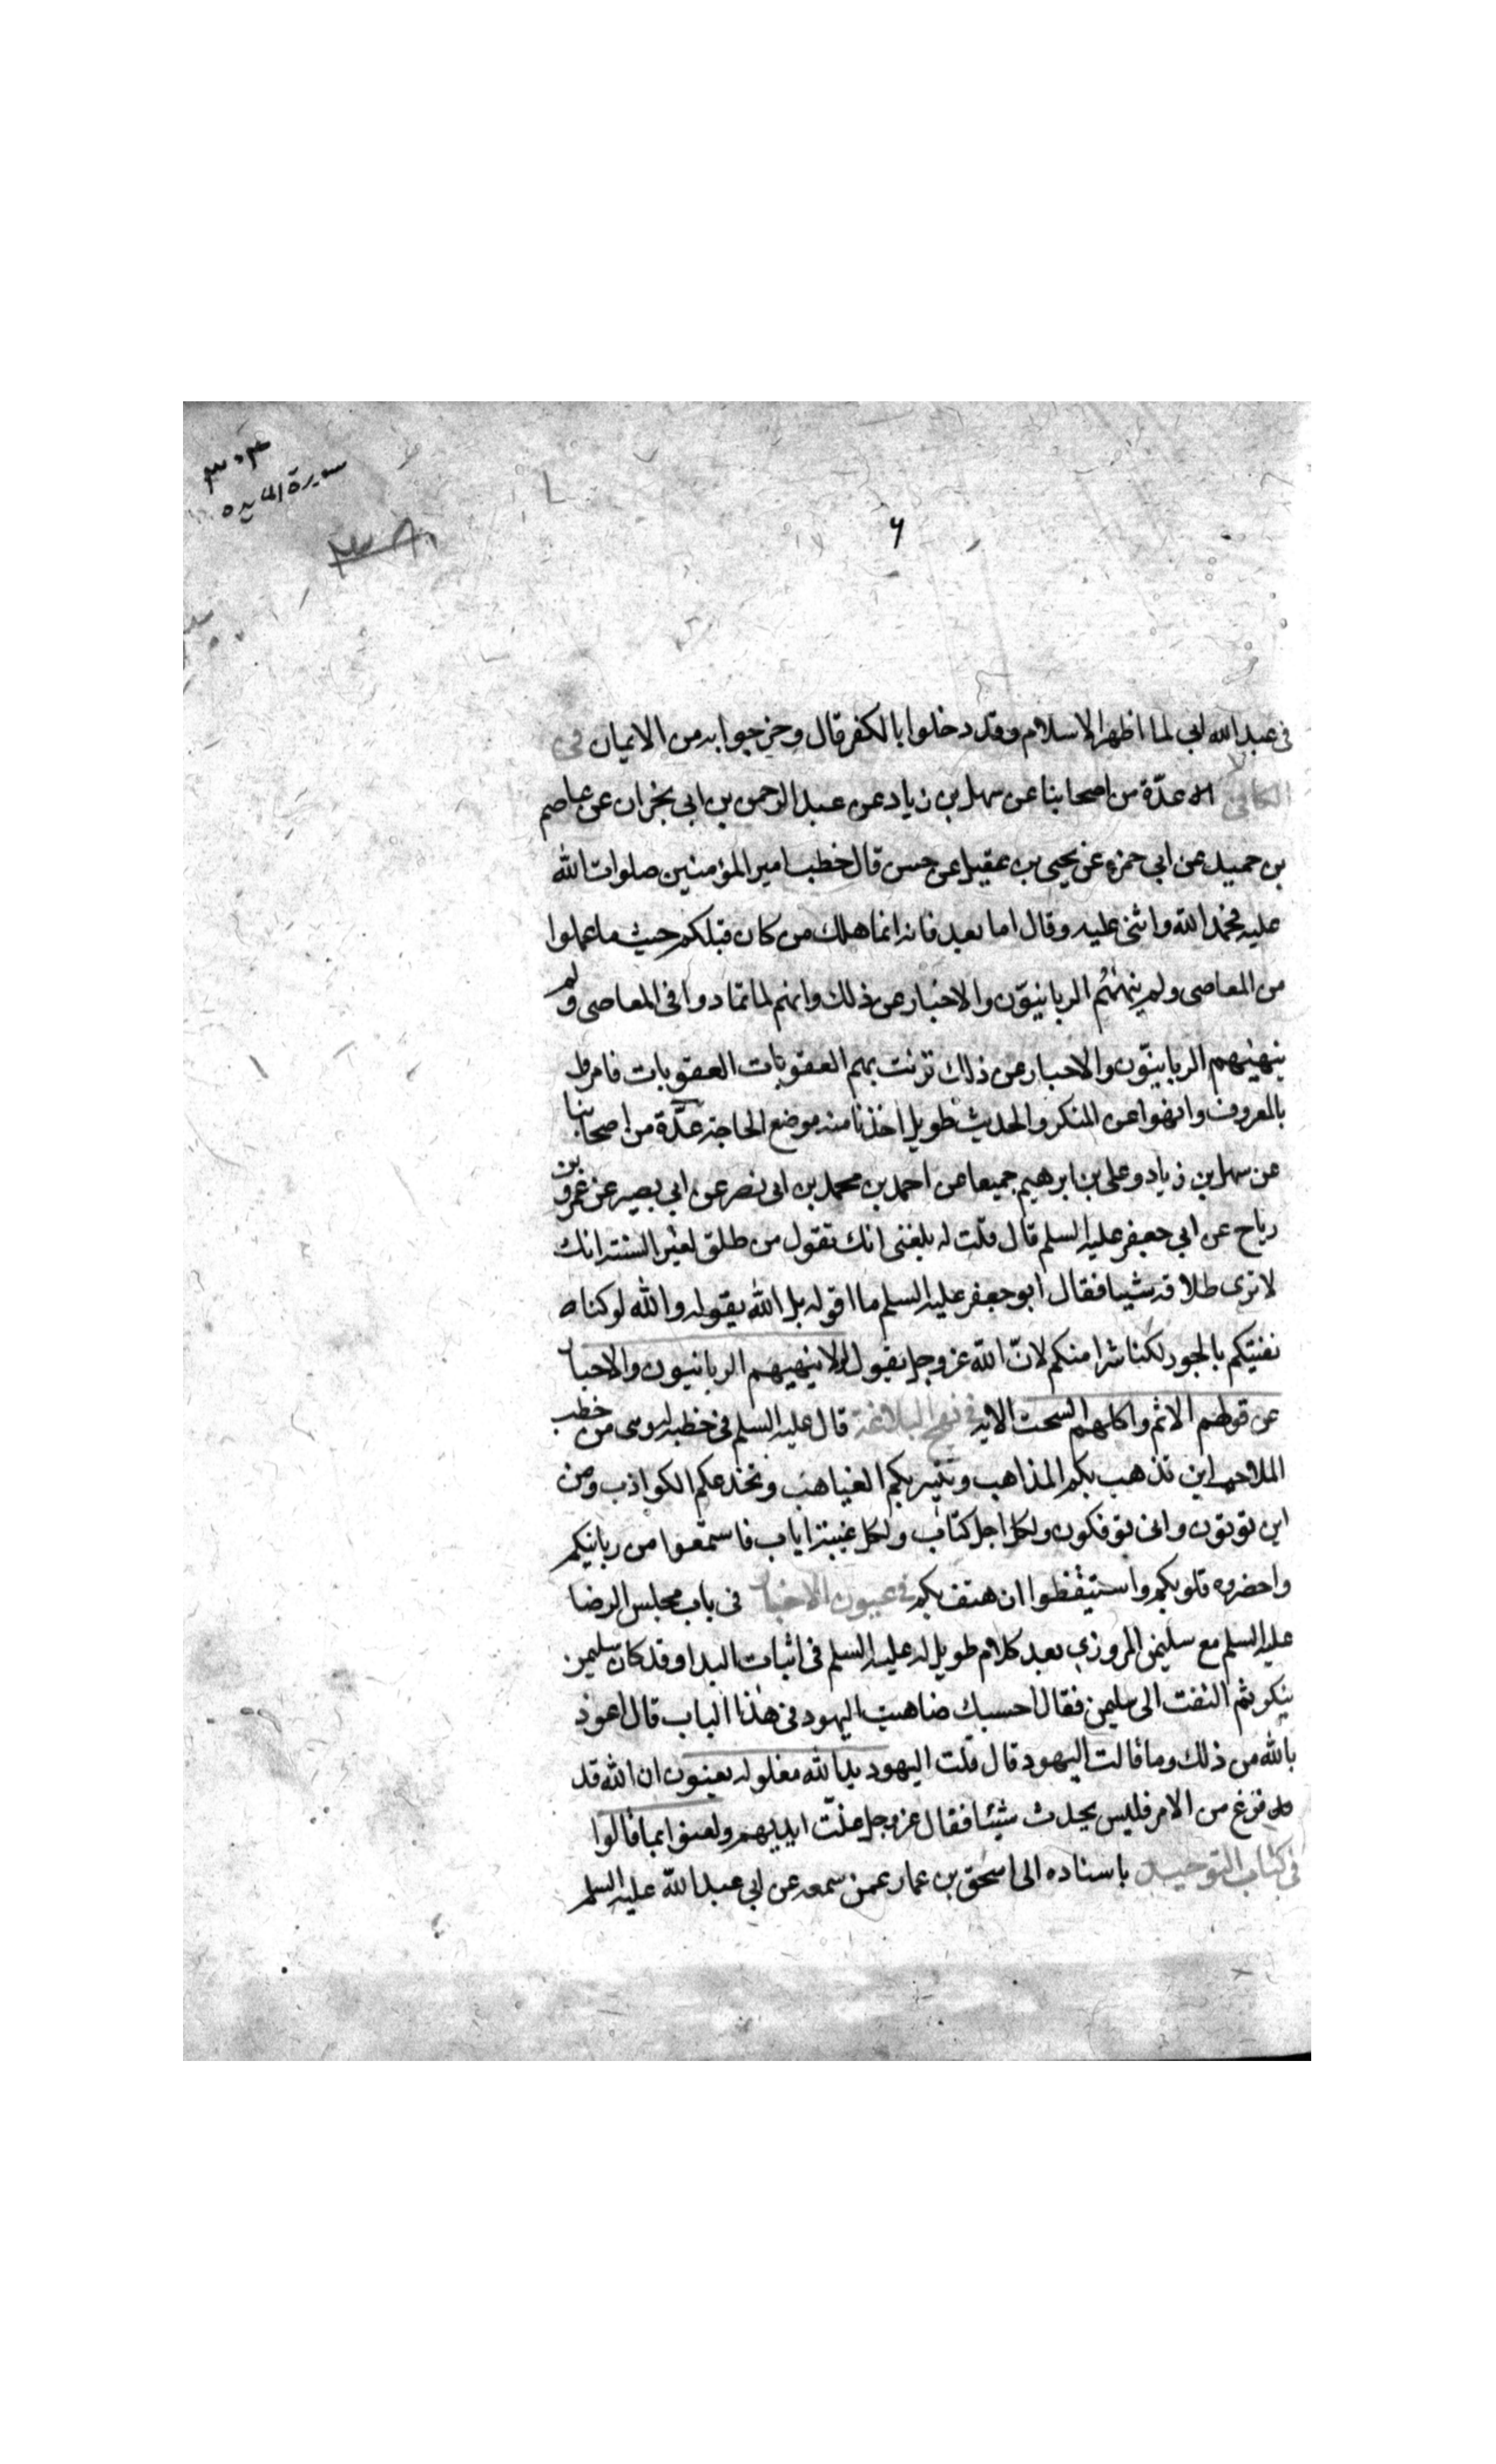 ٣٠٣
سورة المايده
٦
فى عبد الله ابى لما اظهر الاسلام وقد دخلوا بالكفر قال وخرجوا به من الايمان فى
الكافى عدّة من اصحابنا عن سهل بن زياد عن عبد الرحمن بن ابى نجران عن عاصم
بن حميد عن ابى حمزه عن يحيى بن عقيل عن حسن قال خطب امير المؤمنين صلوات الله
عليه فحمد الله واثنى عليه وقال اما بعد فانه انما هلك من كان قبلكم حيث ما عملوا
من المعاصى ولم ينههم الربانيوّن والاحبار عن ذلك وانهم لما تمادوا فى المعاصى ولم
ينهيهم الربانيّون والاحبار عن ذلك نزنت بهم العقوبات العقوبات فامروا
بالمعروف وانهوا عن المنكر والحديث طويل اخذنا منه موضع الحاجة عدّة من اصحابنا
عن سهل بن زياد وعلى بن ابرهيم جميعا عن احمد بن محمد بن ابى نصر عن ابى بصير عن عمرو بن
رباح عن ابى جعفر عليه السلم قال قلت له بلغنى انك تقول من طلق لغير السنة انك
لا ترى طلاقه شيئا فقال ابو جعفر عليه السلم ما اقوله بل الله يقوله والله لو كنا
نفتيكم بالجور لكنا شرا منكم لانّ الله عز وجل يقول لولا ينهيهم الربانيون والاحبار
عن قولهم الاثم واكلهم السحت الايه فى نهج البلاغة قال عليه السلم فى خطبة له وهى من خطب
الملاحم اين تذهب بكم المذاهب وتتيه بكم الغياهب وتخدعكم الكواذب ومن
اين توتون وانى توفكون ولكل اجل كتاب ولكل غيبة اياب فاسمتعوا من ربانيكم
واحضروه قلوبكم واستيقظوا ان هتف بكم فى عيون الاخبار فى باب مجلس الرضا
عليه السلم مع سليمن المروزى بعد كلام طويل له عليه السلم فى اثبات البدا وقد كان سليمن
ينكره ثم التفت الى سليمن فقال احسبك ضاهيت اليهود فى هذا الباب قال اعوذ
بالله من ذلك وما قالت اليهود قال قلت اليهود يد الله مغلوله يعنون ان الله قد
قد فرغ من الامر فليس يحدث شيئا فقال عز وجل غلّت ايديهم ولعنوا بما قالوا
فى كتاب التوحيد باسناده الى اسحق بن عمار عمن سمعه عن ابى عبد الله عليه السلم